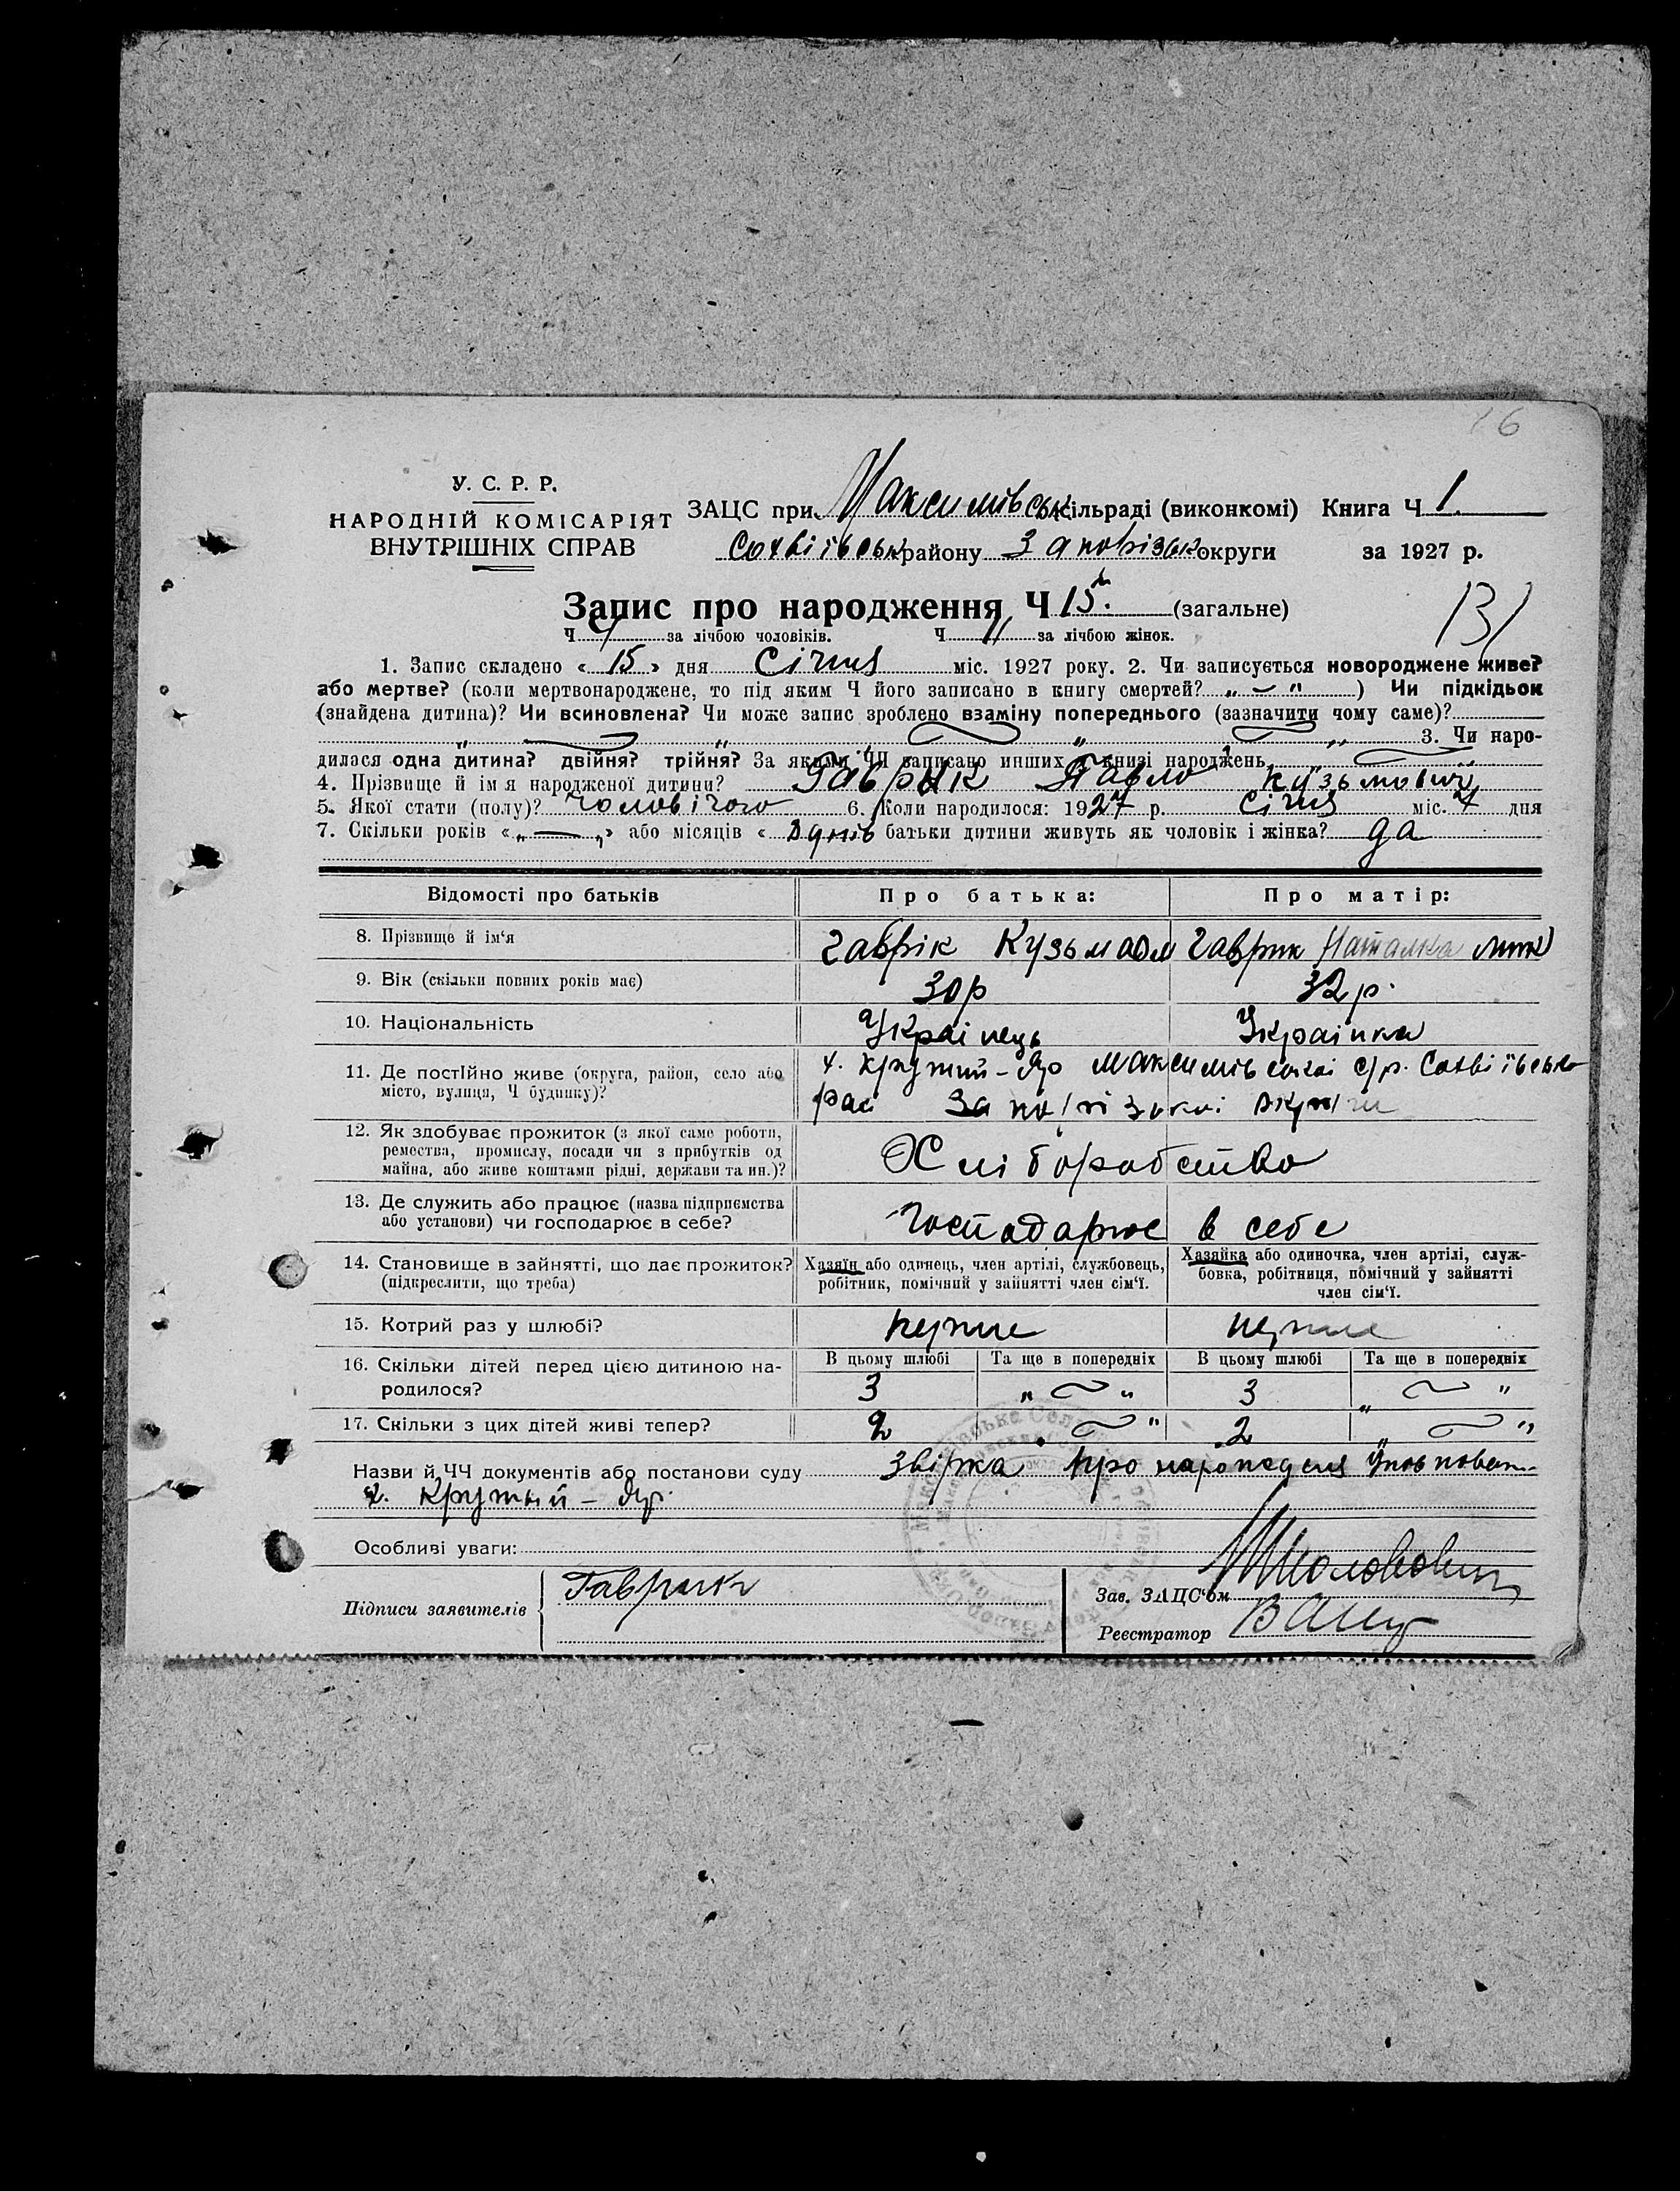 16
У. С. Р. Р.
НАРОДНІЙ КОМІСАРІЯТ
ВНУТРІШНІХ СПРАВ
ЗАЦС при Максимівськ сільраді (виконкомі) Книга Ч 1.
Софіївськ району Запорізьк округи за 1927 р.
Запис про народження Ч 15. (загальне)
Ч 4 за лічбою чоловіків. Ч 11 за лічбою жінок.
1. Запис складено « 15 » дня Січня міс. 1927 року. 2. Чи записується новороджене живе?
або мертве? (коли мертвонароджене, то під яким Ч його записано в книгу смертей? „ — " ) Чи підкідьок
(знайдена дитина)? Чи всиновлена? Чи може запис зроблено взаміну попереднього (зазначити чому саме)?
3. Чи наро-
дилася одна дитина? двійня? трійня? За якими ЧЧ записано инших в книзі народжень
4. Прізвище й ім я народженої дитини? Гаврик Павло Кузьмович
5. Якої стати (полу)? чоловічого 6. Коли народилося: 1927 р. Січня міс. 7 дня
7. Скільки років « „—„ » або місяців « днів батьки дитини живуть як чоловік і жінка? да
Відомості про батьків Про батька: Про матір:
8. Прізвище й ім‘я Гаврік Кузьма Гаврик Наталка
9. Вік (скільки повних років має) 30р 32 р.
10. Національність Українець Українка
11. Де постійно живе (округа, район, село або Крутий-Яр Максимівської с/р. Софіївсько
місто, вулиця, Ч будинку)? рай Запорізької округи
12. Як здобуває прожиток (з якої саме роботи,
ремества, промислу, посади чи з прибутків од
майна, або живе коштами рідні, держави та ин.)? Хліборобство
13. Де служить або працює (назва підприємства
або установи) чи господарює в себе? Господарює в себе
14. Становище в зайнятті, що дає прожиток? Хазяїн або одинець, член артілі, службовець, Хазяйка або одиночка, член артілі, служ-
(підкреслити, що треба) робітник, помічний у зайнятті член сім‘ї. бовка, робітниця, помічний у зайнятті
член сім‘ї.
15. Котрий раз у шлюбі? перше перше
16. Скільки дітей перед цією дитиною на- В цьому шлюбі Та ще в попередніх В цьому шлюбі Та ще в попередніх
родилося? 3 „ — „ 3 „ — "
17. Скільки з цих дітей живі тепер? 2 „ — " 2 „ — "
Назви й ЧЧ документів або постанови суду Звірка про народження
Крутый - Яр.
Особливі уваги:
Підписи заявителів Гаврик Зав. ЗАЦС‘ом
Реєстратор